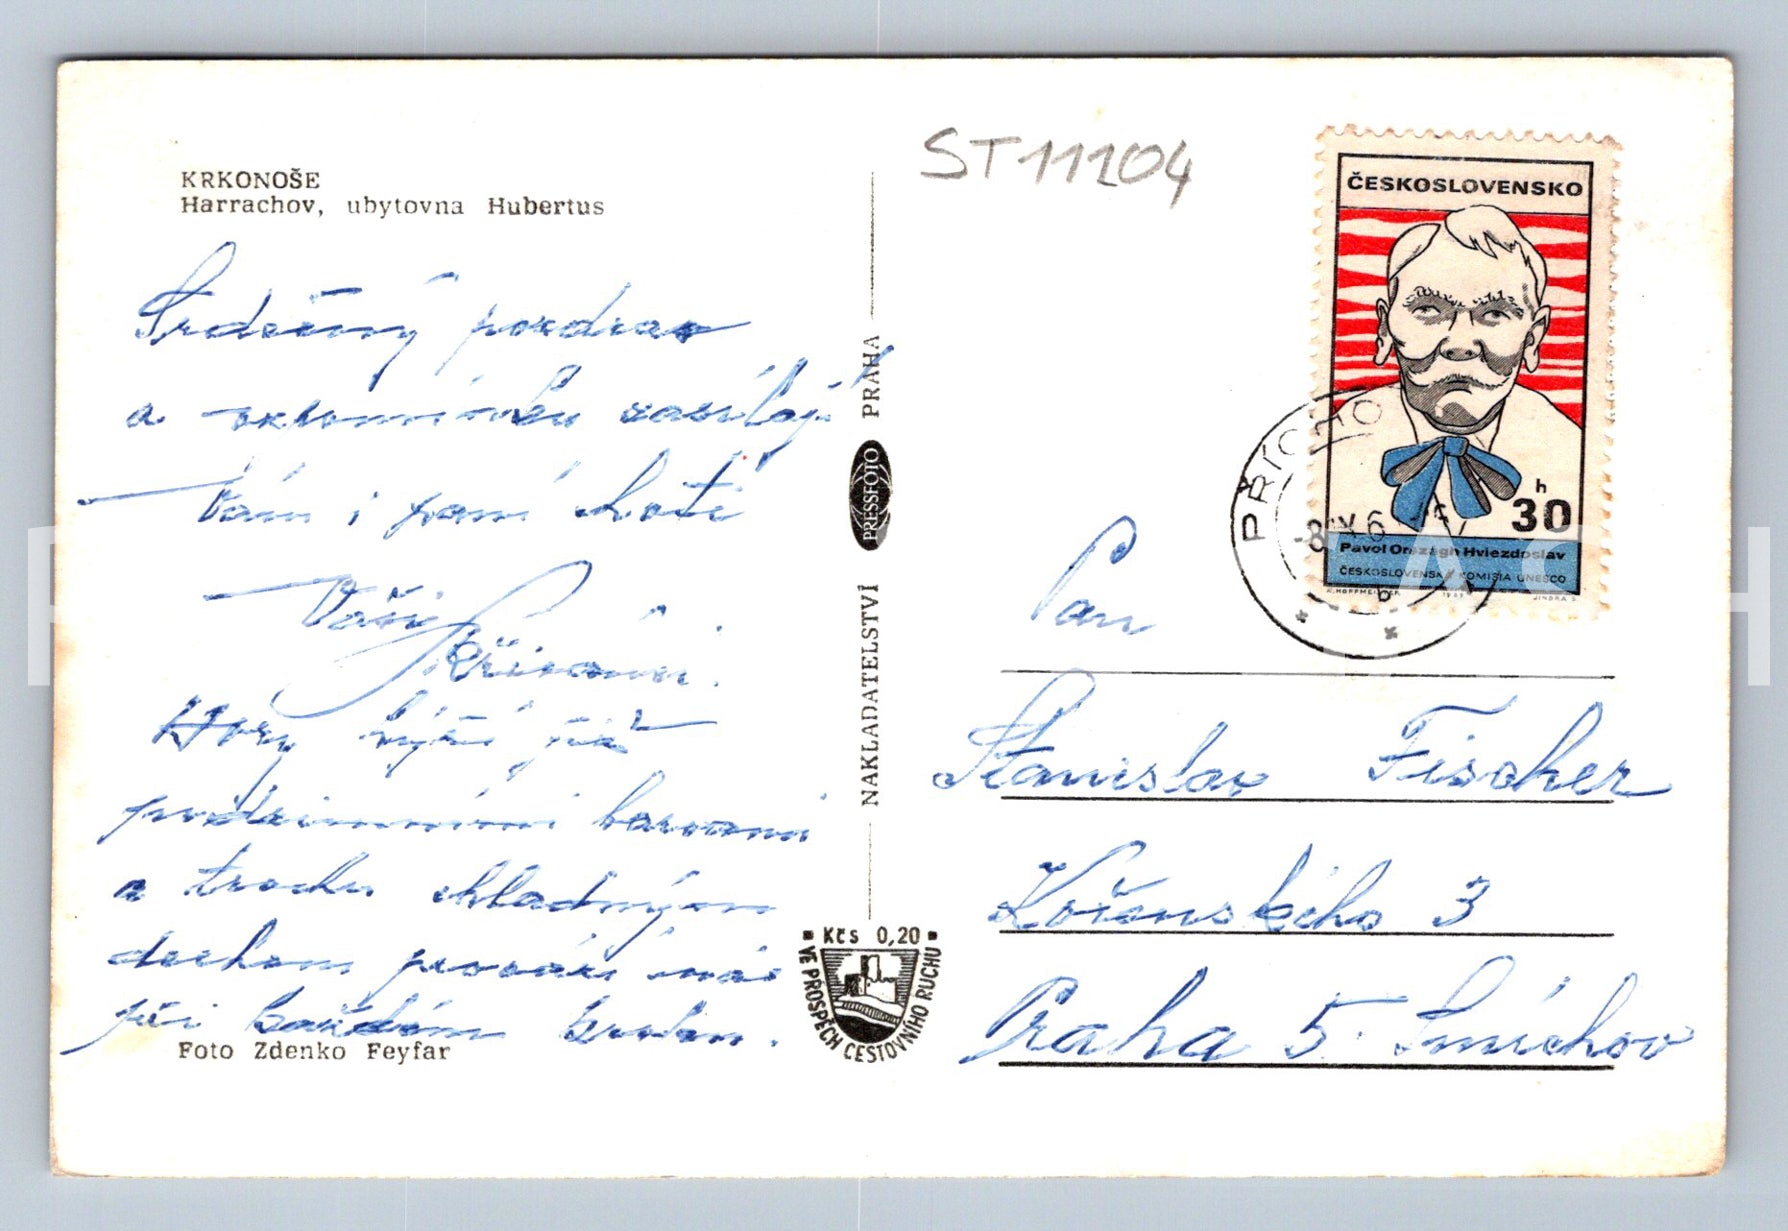 KRKONOŠE
Harrachov, ubytovna Hubertus
Srdečný pozdrav
a vzpomínku zasílají
Vám i paní choti
Vaši
Hory hýří již
podzimními barvami
a trochu chladným
dechem provází nás
při každém kroku.
Foto Zdenko Feyfar
NAKLADATELSTVÍ PRESSFOTO PRAHA
Kčs 0,20
VE PROSPĚCH CESTOVNÍHO RUCHU
ST11104
ČESKOSLOVENSKO
30 h
Pavol Országh Hviezdoslav
ČESKOSLOVENSKÁ KOMISIA UNESCO
A. HOFFMEISTER 1969 JINDRA S.
-8.IX.6
b
Pan
Stanislav Fischer
Kořenského 3
Praha 5. Smíchov